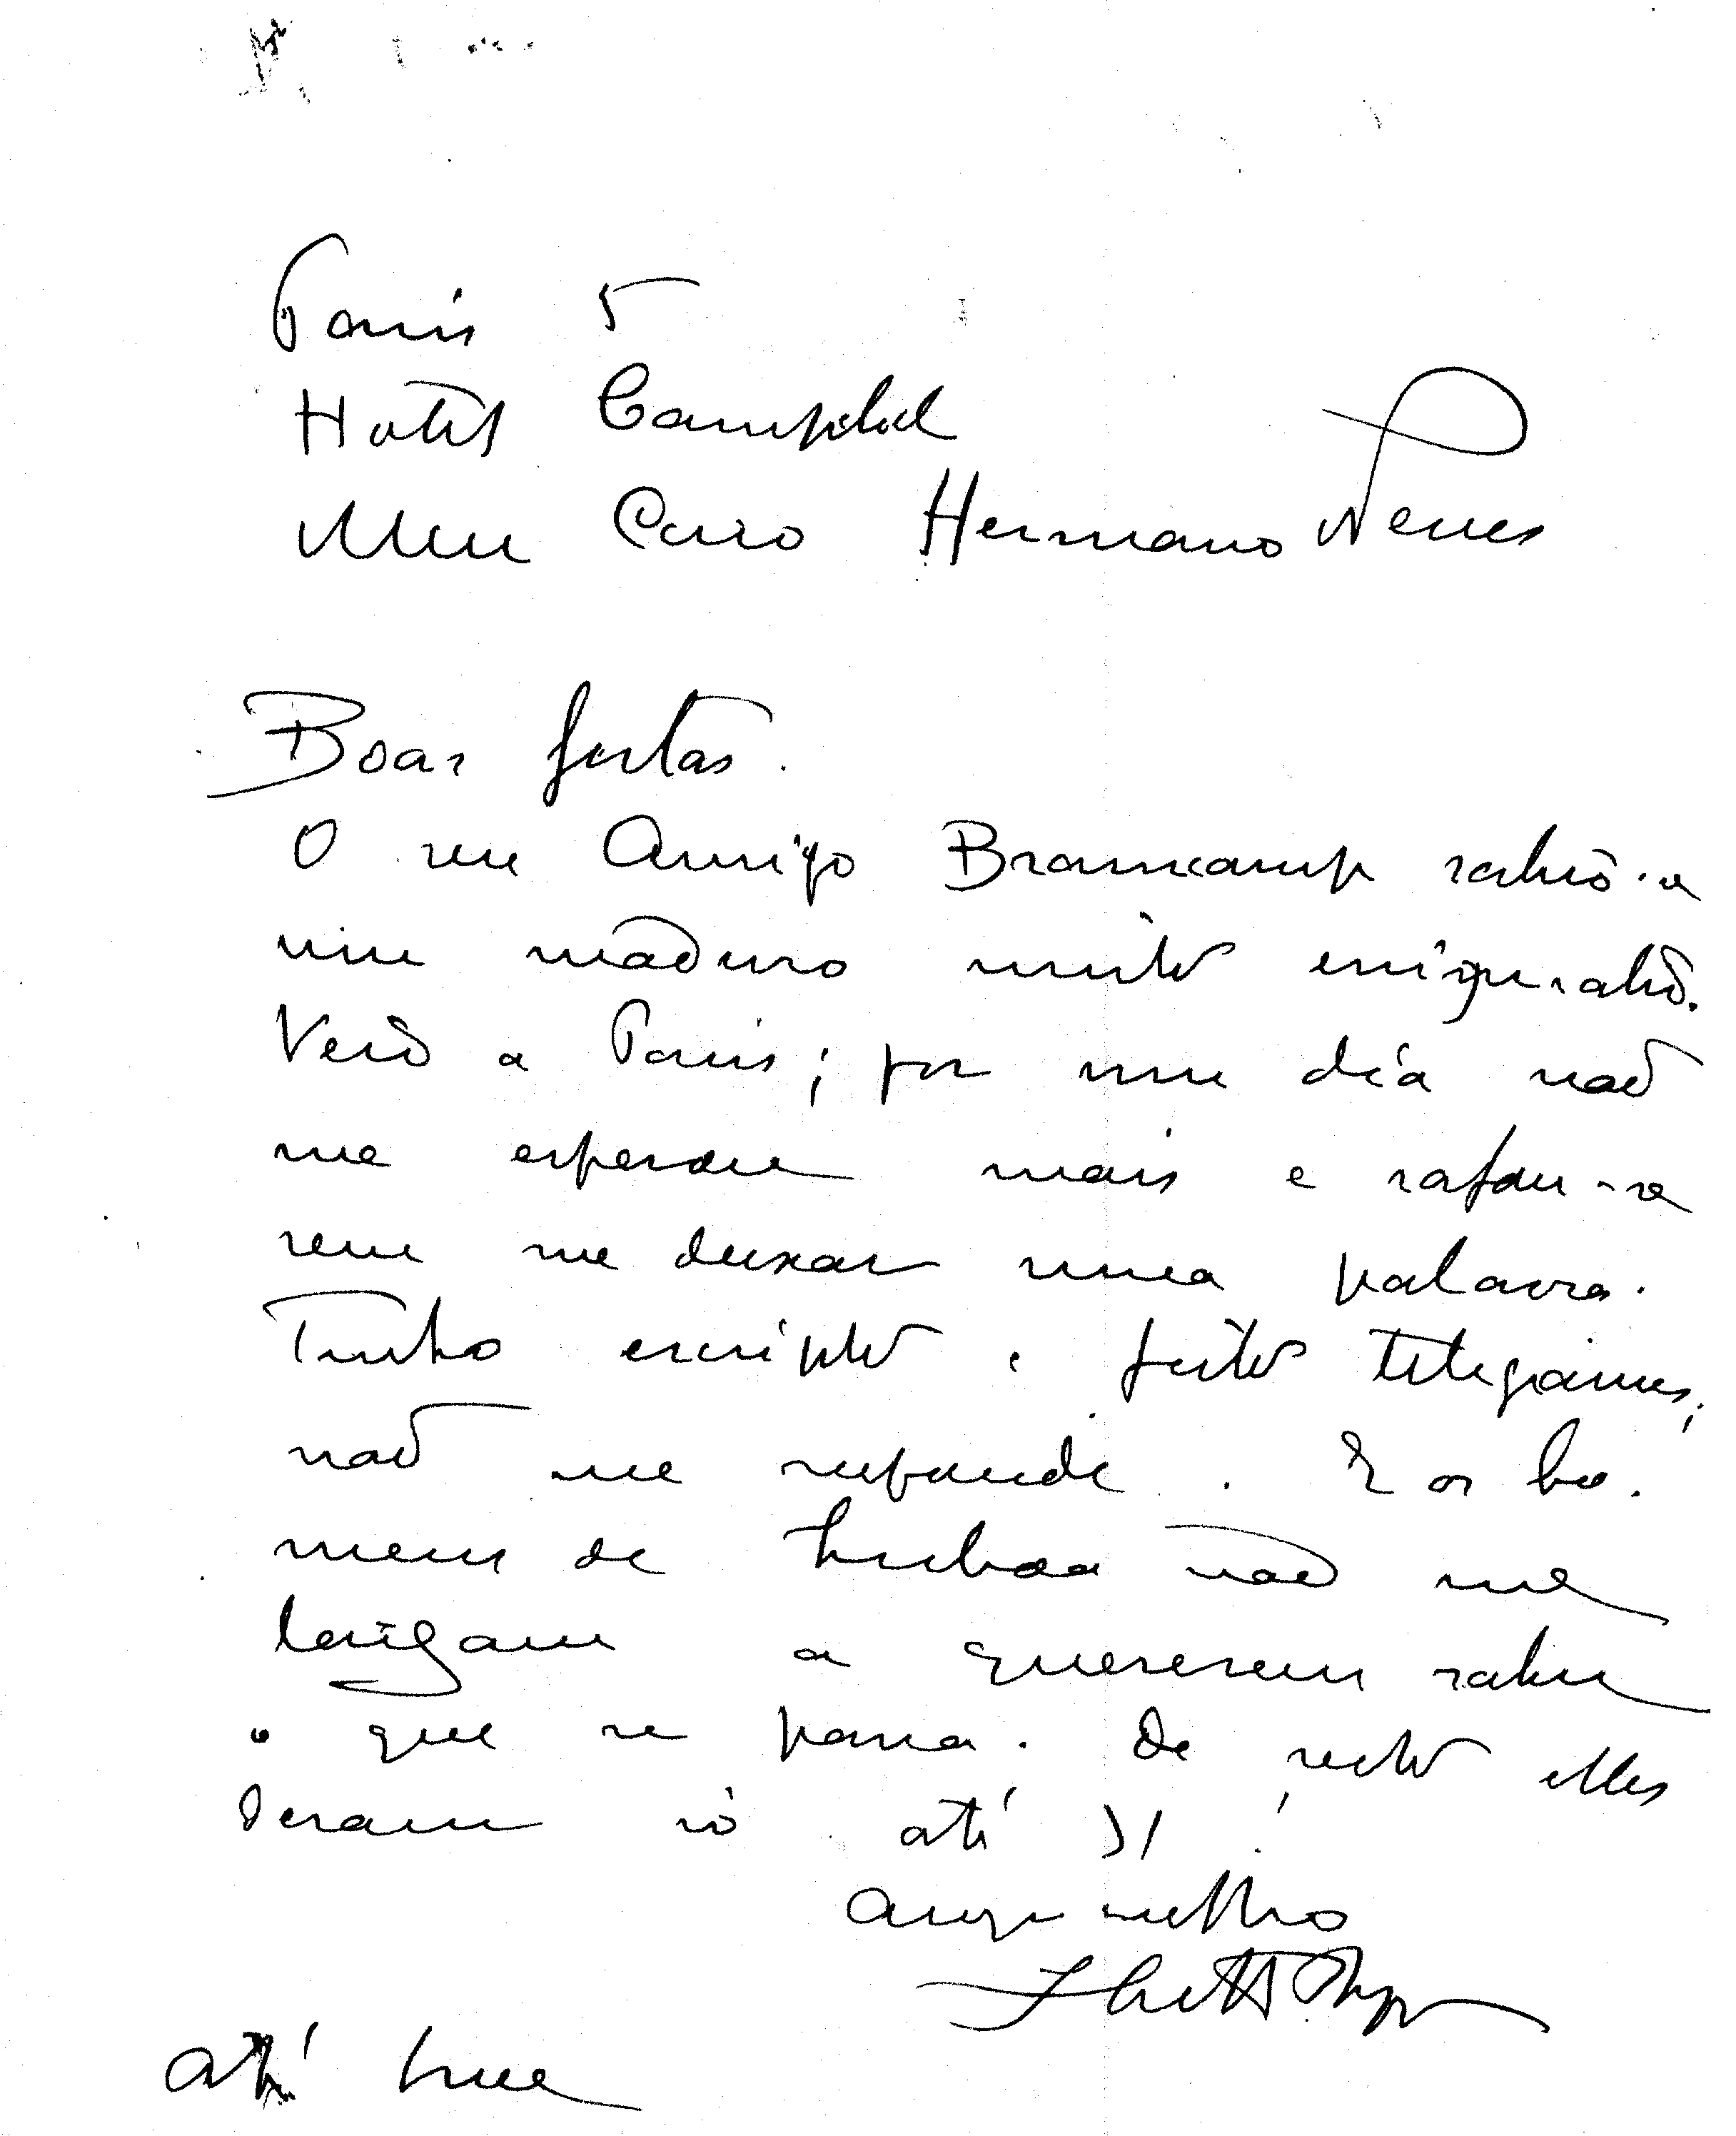 Paris 5
Hotel Campbell
Meu Caro Hermano Neves
Boas festas.
O seu Amigo Bramcamp sahiò-se
um maduro muito exquisito.
Veiò a Paris; por um dia naõ
me esperou mais e safou-se
sem me deixar uma palavra.
Tenho escripto e feito telegramas,
naõ me responde. E os ho-
mens de Lisboa naõ me
largam a quererem saber
o que se passa. De resto elles
deram só até 31!
Amigo
até